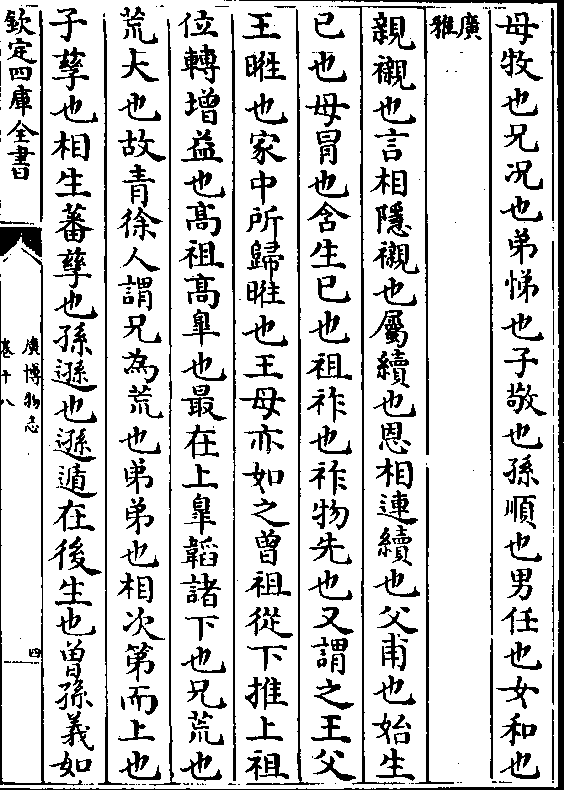 母牧也兄况也弟悌也子敬也孫順也男任也女和也
廣雅
親襯也言相隱襯也屬續也恩相連續也父甫也始生
已也母冐也含生已也祖祚也祚物先也又謂之王父
王暀也家中所歸暀也王母亦如之曾祖從下推上祖
位轉增益也髙祖髙臯也最在上臯韜諸下也兄荒也
荒大也故青徐人謂兄為荒也弟弟也相次第而上也
子孳也相生蕃孳也孫遜也遜遁在後生也曾孫義如
欽定四庫全書
廣博物志
卷十八
四